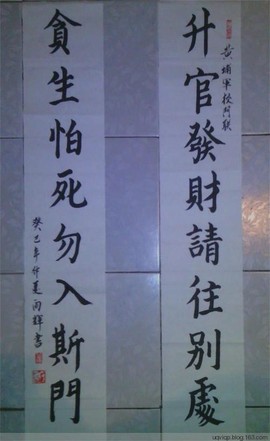 黄埔軍校門联
升官發財請往别處
貪生怕死勿入斯門
癸巳年仲夏雨輝書
uqncjp.blog.163.com